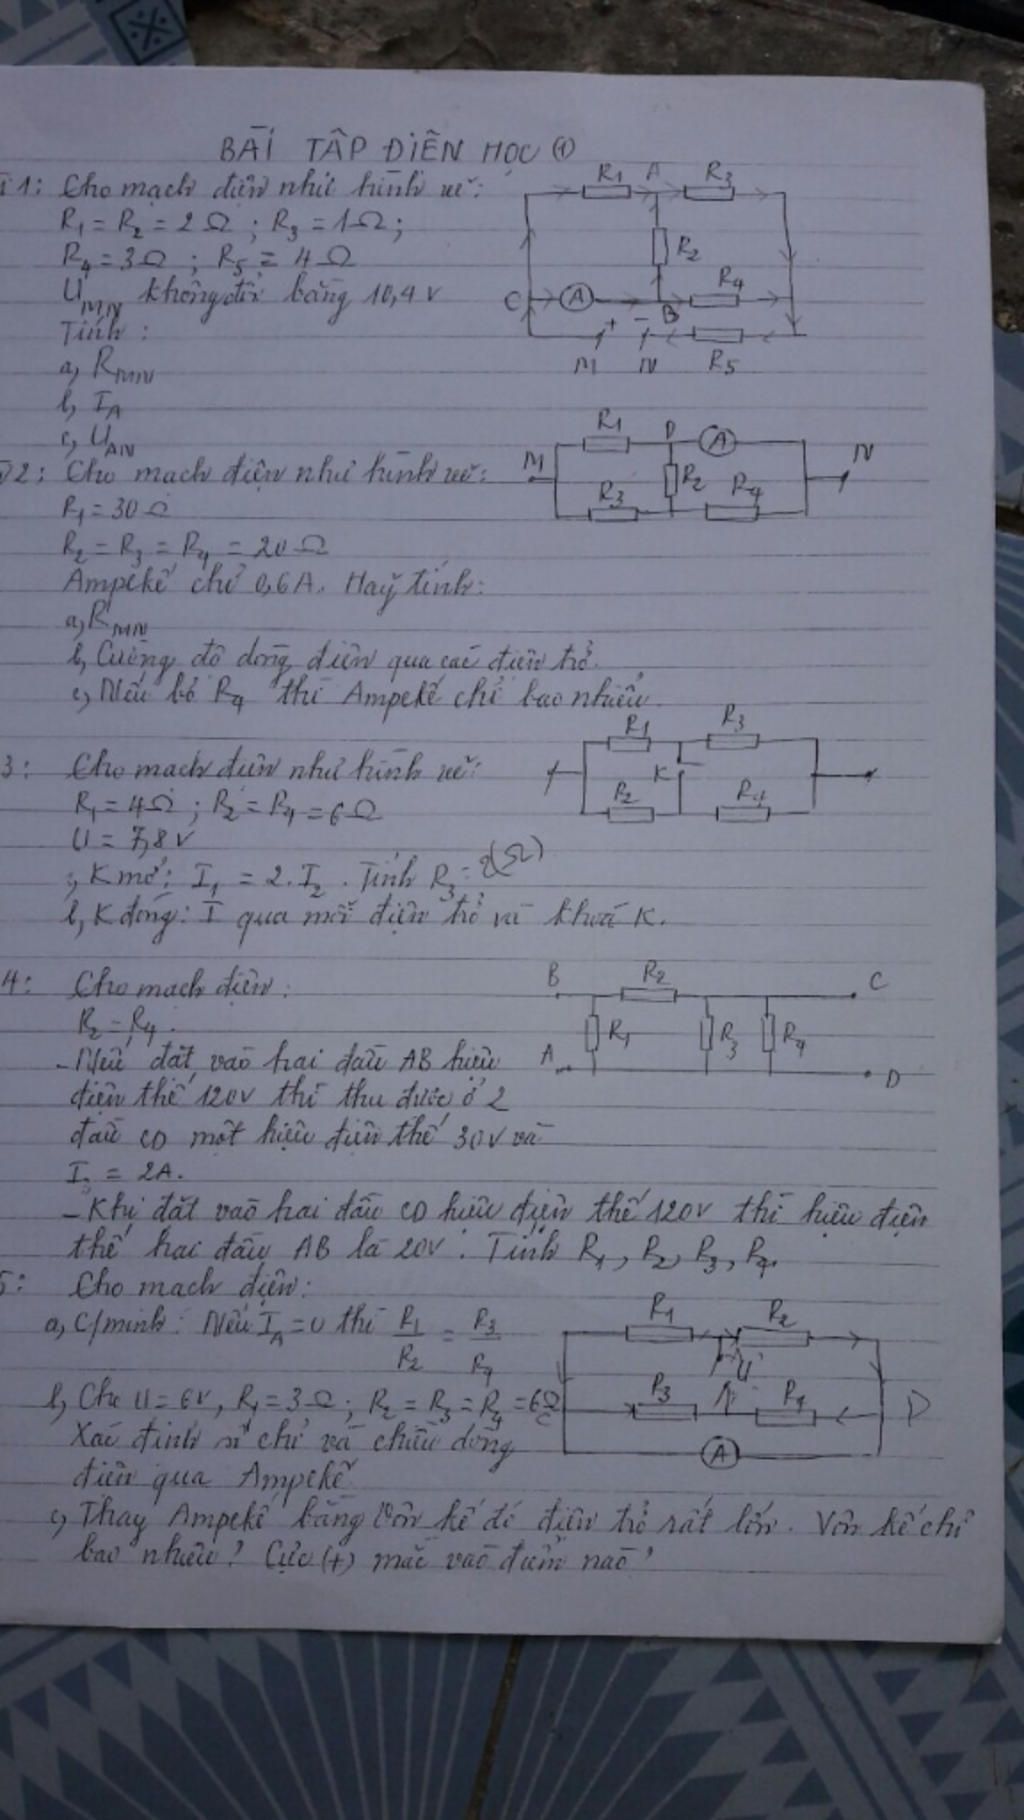 BÀI TẬP ĐIỆN HỌC (1)
1: Cho mạch điện như hình vẽ:
R1 = R2 = 2Ω ; R3 = 1Ω;
R4 = 3Ω ; R5 = 4Ω
UMN không đổi bằng 10,4 V
Tính :
a, RMN
b, IA
c, UAN
R1 A R3
R2
R4
C A B
+ -
M N R5
2: Cho mạch điện như hình vẽ:
R1 = 30 Ω
R2 = R3 = R4 = 20 Ω
Ampekế chỉ 0,6A. Hãy tính:
a, RMN
b, Cường độ dòng điện qua các điện trở.
c, Nếu bỏ R4 thì Ampekế chỉ bao nhiêu.
R1 P A
M N
R2
R3 R4
3: Cho mạch điện như hình vẽ:
R1 = 4Ω ; R2 = R4 = 6Ω
U = 7,8 V
, K mở: I1 = 2.I2 . Tính R3 = 2(Ω)
b, K đóng: I qua mỗi điện trở và khoá K.
R1 R3
K
R2 R4
4: Cho mạch điện:
R2 = R4.
- Nếu đặt vào hai đầu AB hiệu
điện thế 120V thì thu được ở 2
đầu CD một hiệu điện thế 30V và
= 2A.
- Khi đặt vào hai đầu CD hiệu điện thế 120V thì hiệu điện
thế hai đầu AB là 20V. Tính R1, R2, R3, R4.
B R2 C
R1 R3 R4
A D
5: Cho mạch điện:
a, C/minh: Nếu IA = 0 thì R1/R2 = R3/R4
b, Cho U = 6V, R1 = 3Ω; R2 = R3 = R4 = 6Ω
Xác định số chỉ và chiều dòng
điện qua Ampekế
c, Thay Ampekế bằng Vôn kế có điện trở rất lớn. Vôn kế chỉ
bao nhiêu? Cực (+) mắc vào điểm nào?
R1 R2
- U
R3 + R4
C D
A